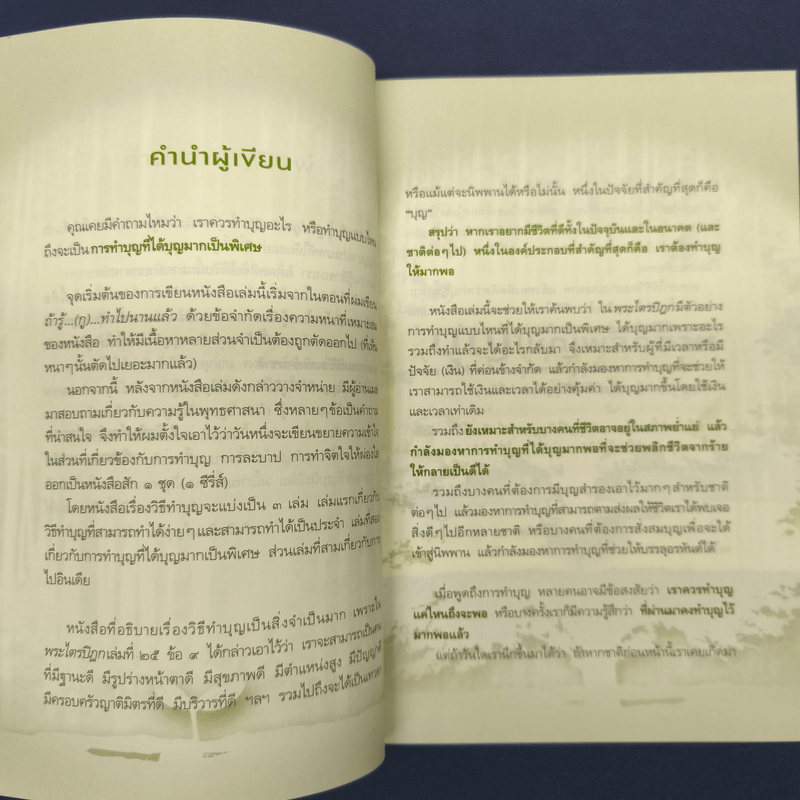 คำนำผู้เขียน
คุณเคยมีคำถามไหมว่า เราควรทำบุญอะไร หรือทำบุญแบบไหน
ถึงจะเป็น การทำบุญที่ได้บุญมากเป็นพิเศษ
จุดเริ่มต้นของการเขียนหนังสือเล่มนี้เริ่มจากในตอนที่ผมเขียน
ถ้ารู้...(กู)...ทำไปนานแล้ว ด้วยข้อจำกัดเรื่องความหนาที่เหมาะสม
ของหนังสือ ทำให้มีเนื้อหาหลายส่วนจำเป็นต้องถูกตัดออกไป (ที่เห็น
หนาๆนั้นตัดไปเยอะมากแล้ว)
นอกจากนี้ หลังจากหนังสือเล่มดังกล่าววางจำหน่าย มีผู้อ่าน
มาสอบถามเกี่ยวกับความรู้ในพุทธศาสนา ซึ่งหลายๆข้อเป็นคำถาม
ที่น่าสนใจ จึงทำให้ผมตั้งใจเอาไว้ว่าวันหนึ่งจะเขียนขยายความเข้าใจ
ในส่วนที่เกี่ยวข้องกับการทำบุญ การละบาป การทำจิตใจให้ผ่องใส
ออกเป็นหนังสือสัก ๑ ชุด (๑ ซีรี่ส์)
โดยหนังสือเรื่องวิธีทำบุญจะแบ่งเป็น ๓ เล่ม เล่มแรกเกี่ยวกับ
วิธีทำบุญที่สามารถทำได้ง่ายๆและสามารถทำได้เป็นประจำ เล่มที่สอง
เกี่ยวกับการทำบุญที่ได้บุญมากเป็นพิเศษ ส่วนเล่มที่สามเกี่ยวกับการ
ไปอินเดีย
หนังสือที่อธิบายเรื่องวิธีทำบุญเป็นสิ่งจำเป็นมาก เพราะใน
พระไตรปิฎกเล่มที่ ๒๕ ข้อ ๙ ได้กล่าวเอาไว้ว่า เราจะสามารถเป็นคน
ที่มีฐานะดี มีรูปร่างหน้าตาดี มีสุขภาพดี มีตำแหน่งสูง มีปัญญาดี
มีครอบครัวญาติมิตรที่ดี มีบริวารที่ดี ฯลฯ รวมไปถึงจะได้เป็นเทวดา
หรือแม้แต่จะนิพพานได้หรือไม่นั้น หนึ่งในปัจจัยที่สำคัญที่สุดก็คือ
"บุญ"
สรุปว่า หากเราอยากมีชีวิตที่ดีทั้งในปัจจุบันและในอนาคต (และ
ชาติต่อๆไป) หนึ่งในองค์ประกอบที่สำคัญที่สุดก็คือ เราต้องทำบุญ
ให้มากพอ
หนังสือเล่มนี้จะช่วยให้เราค้นพบว่า ใน พระไตรปิฎก มีตัวอย่าง
การทำบุญแบบไหนที่ได้บุญมากเป็นพิเศษ ได้บุญมากเพราะอะไร
รวมถึงทำแล้วจะได้อะไรกลับมา จึงเหมาะสำหรับผู้ที่มีเวลาหรือมี
ปัจจัย (เงิน) ที่ค่อนข้างจำกัด แล้วกำลังมองหาการทำบุญที่จะช่วยให้
เราสามารถใช้เงินและเวลาได้อย่างคุ้มค่า ได้บุญมากขึ้นโดยใช้เงิน
และเวลาเท่าเดิม
รวมถึง ยังเหมาะสำหรับบางคนที่ชีวิตอาจอยู่ในสภาพย่ำแย่ แล้ว
กำลังมองหาการทำบุญที่ได้บุญมากพอที่จะช่วยพลิกชีวิตจากร้าย
ให้กลายเป็นดีได้
รวมถึงบางคนที่ต้องการมีบุญสำรองเอาไว้มากๆสำหรับชาติ
ต่อๆไป แล้วมองหาการทำบุญที่สามารถตามส่งผลให้ชีวิตเราได้พบเจอ
สิ่งดีๆไปอีกหลายชาติ หรือบางคนที่ต้องการสั่งสมบุญเพื่อจะได้
เข้าสู่นิพพาน แล้วกำลังมองหาการทำบุญที่ช่วยให้บรรลุอรหันต์ได้
เมื่อพูดถึงการทำบุญ หลายคนอาจมีข้อสงสัยว่า เราควรทำบุญ
แค่ไหนถึงจะพอ หรือบางครั้งเราก็มีความรู้สึกว่า ที่ผ่านมาคงทำบุญไว้
มากพอแล้ว
แต่ถ้าวันใดเรานึกขึ้นมาได้ว่า ถ้าหากชาติก่อนหน้านี้เราเคยเกิดมา